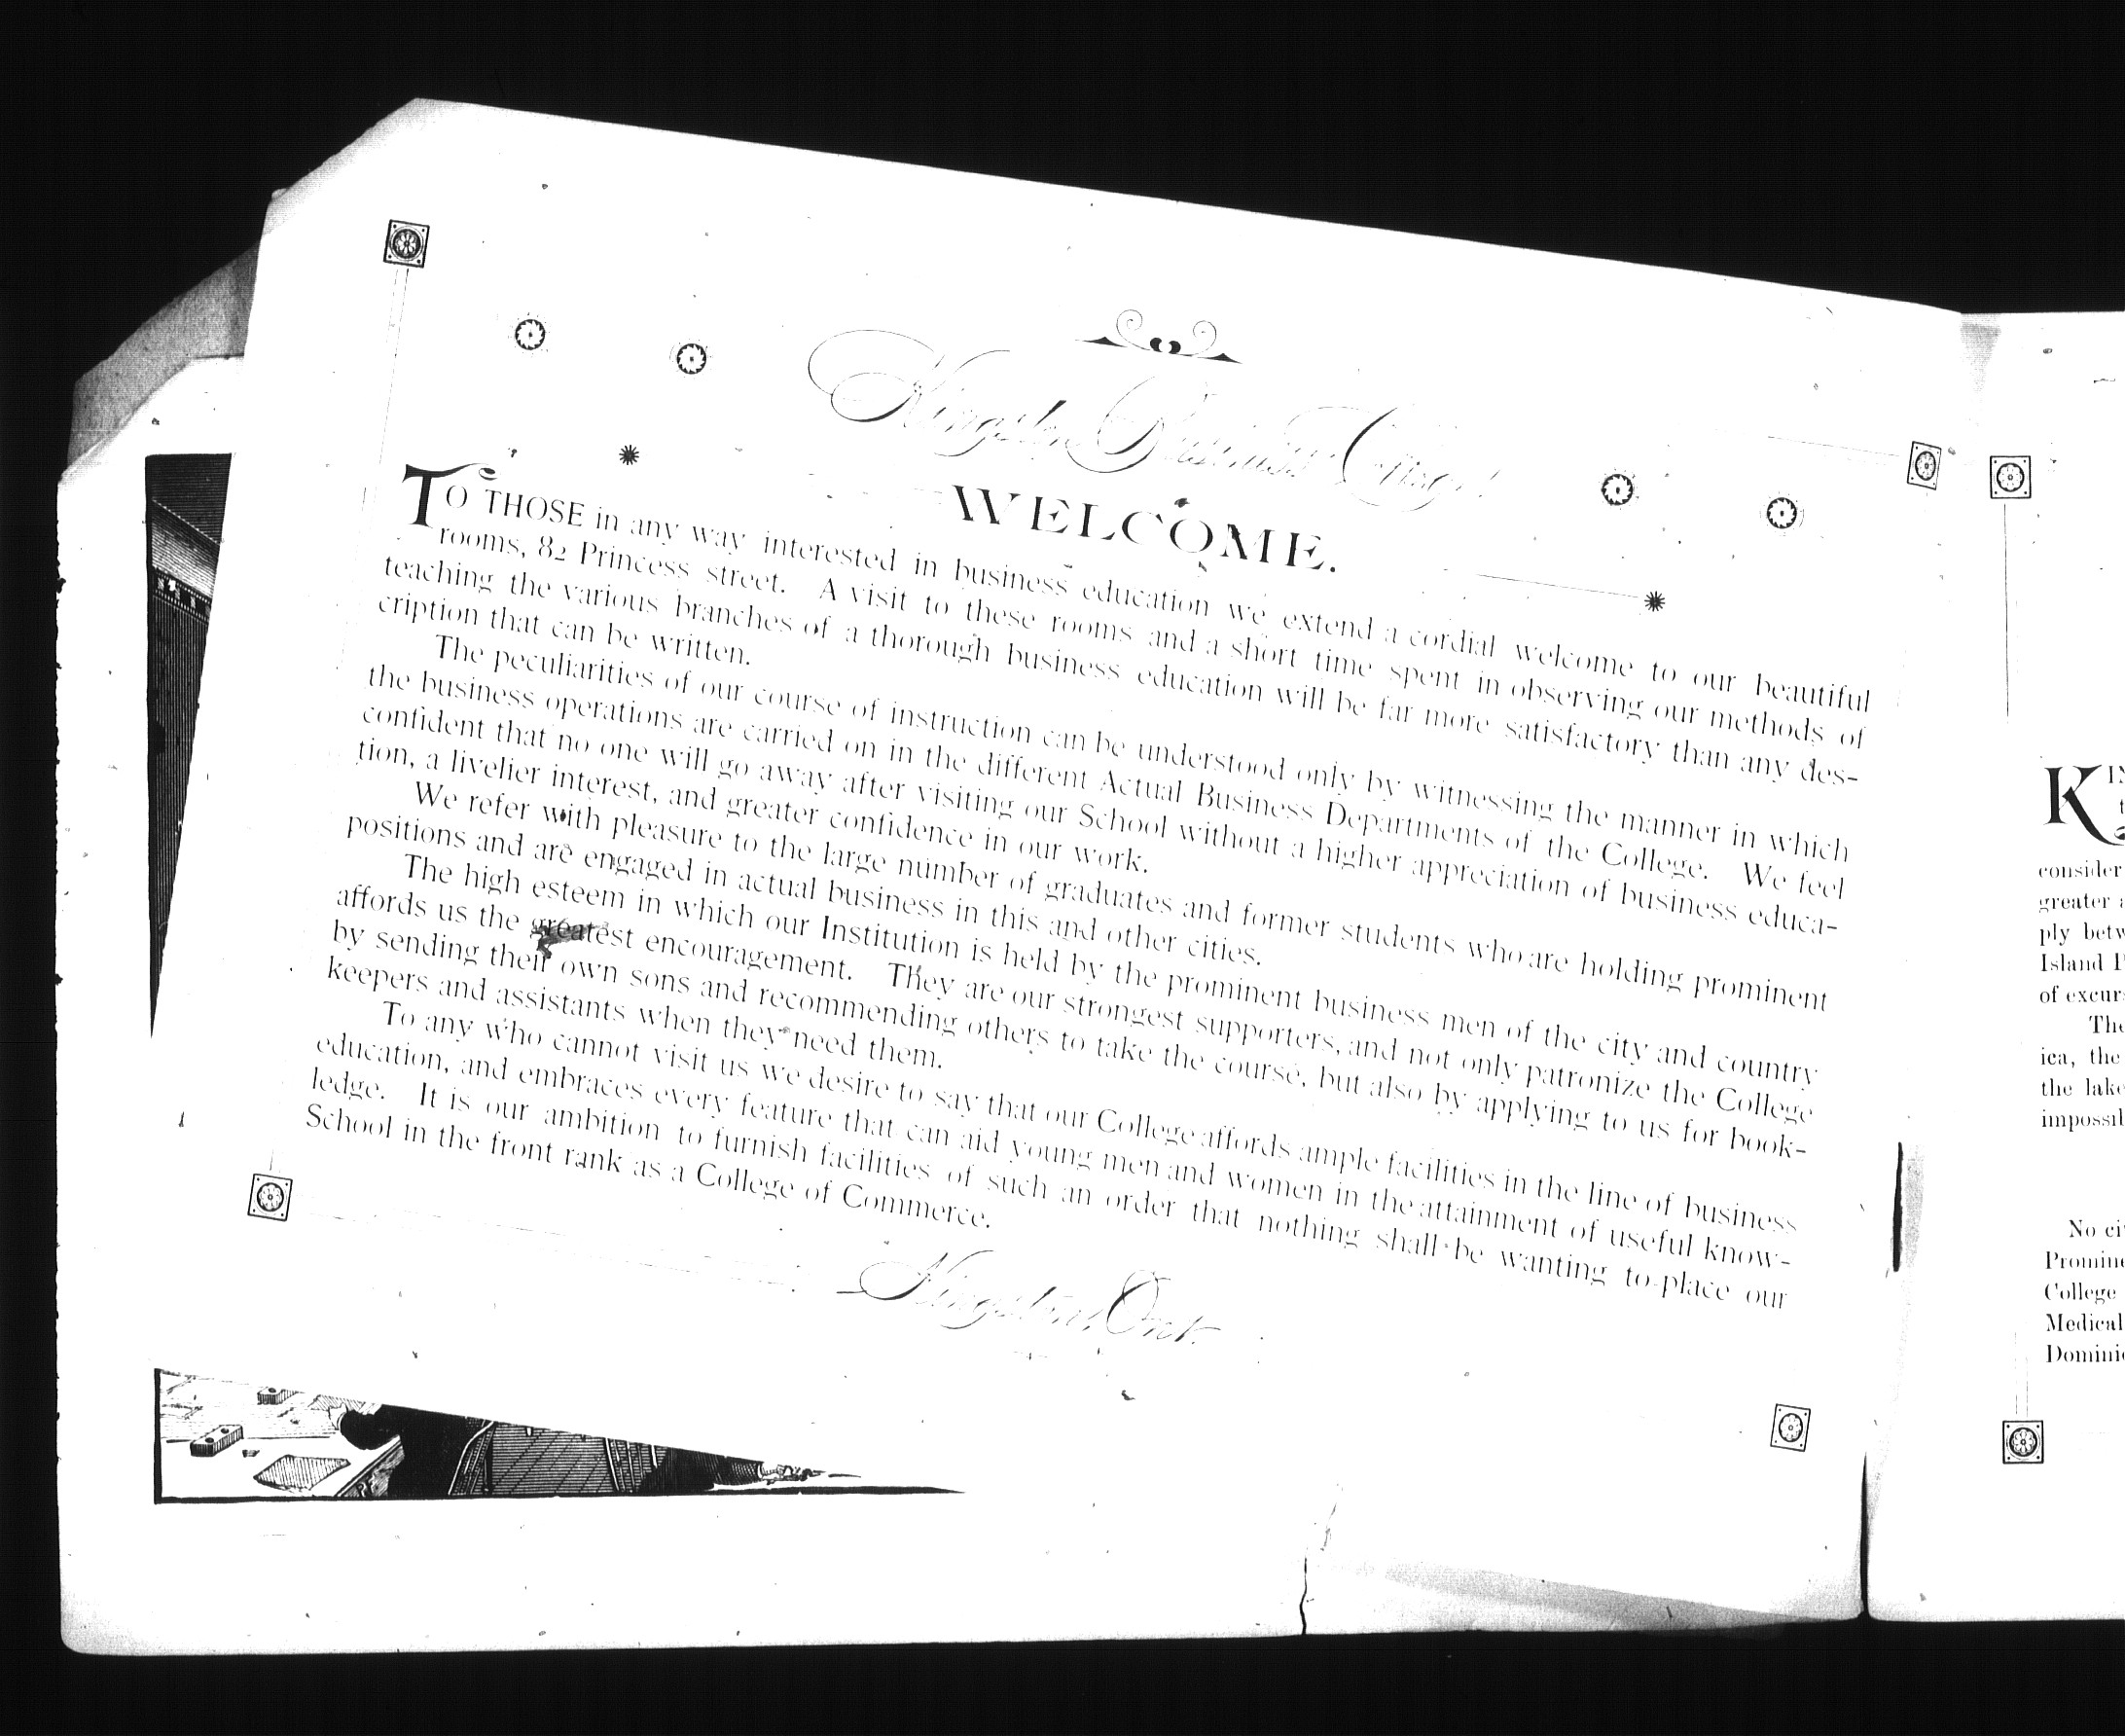 Kingston Business College
WELCOME.
TO THOSE in any way interested in business education we extend a cordial welcome to our beautiful
rooms, 82 Princess street. A visit to these rooms and a short time spent in observing our methods of
teaching the various branches of a thorough business education will be far more satisfactory than any des-
cription that can be written.
The peculiarities of our course of instruction can be understood only by witnessing the manner in which
the business operations are carried on in the different Actual Business Departments of the College. We feel
confident that no one will go away after visiting our School without a higher appreciation of business educa-
tion, a livelier interest, and greater confidence in our work.
We refer with pleasure to the large number of graduates and former students who are holding prominent
positions and are engaged in actual business in this and other cities.
The high esteem in which our Institution is held by the prominent business men of the city and country
affords us the greatest encouragement. They are our strongest supporters, and not only patronize the College
by sending their own sons and recommending others to take the course, but also by applying to us for book-
keepers and assistants when they need them.
To any who cannot visit us we desire to say that our College affords ample facilities in the line of business
education, and embraces every feature that can aid young men and women in the attainment of useful know-
ledge. It is our ambition to furnish facilities of such an order that nothing shall be wanting to place our
School in the front rank as a College of Commerce.
Kingston, Ont.
consider
greater
ply
Island
of
The
ica, the
the
No
College
Medical